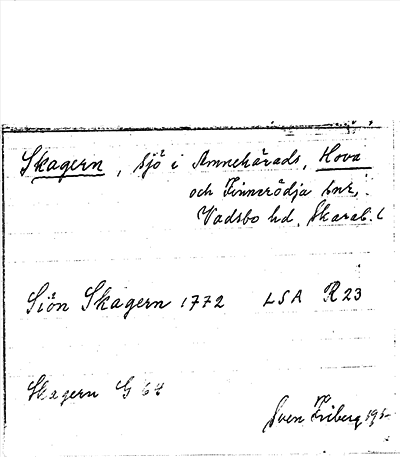 Skagern, sjö i Amnehärads, Hova
och Finnerödja snr,
Vadsbo hd, Skarab. l
Siön Skagern 1772 LSA R 23
Skagern G 64
Sven Friberg